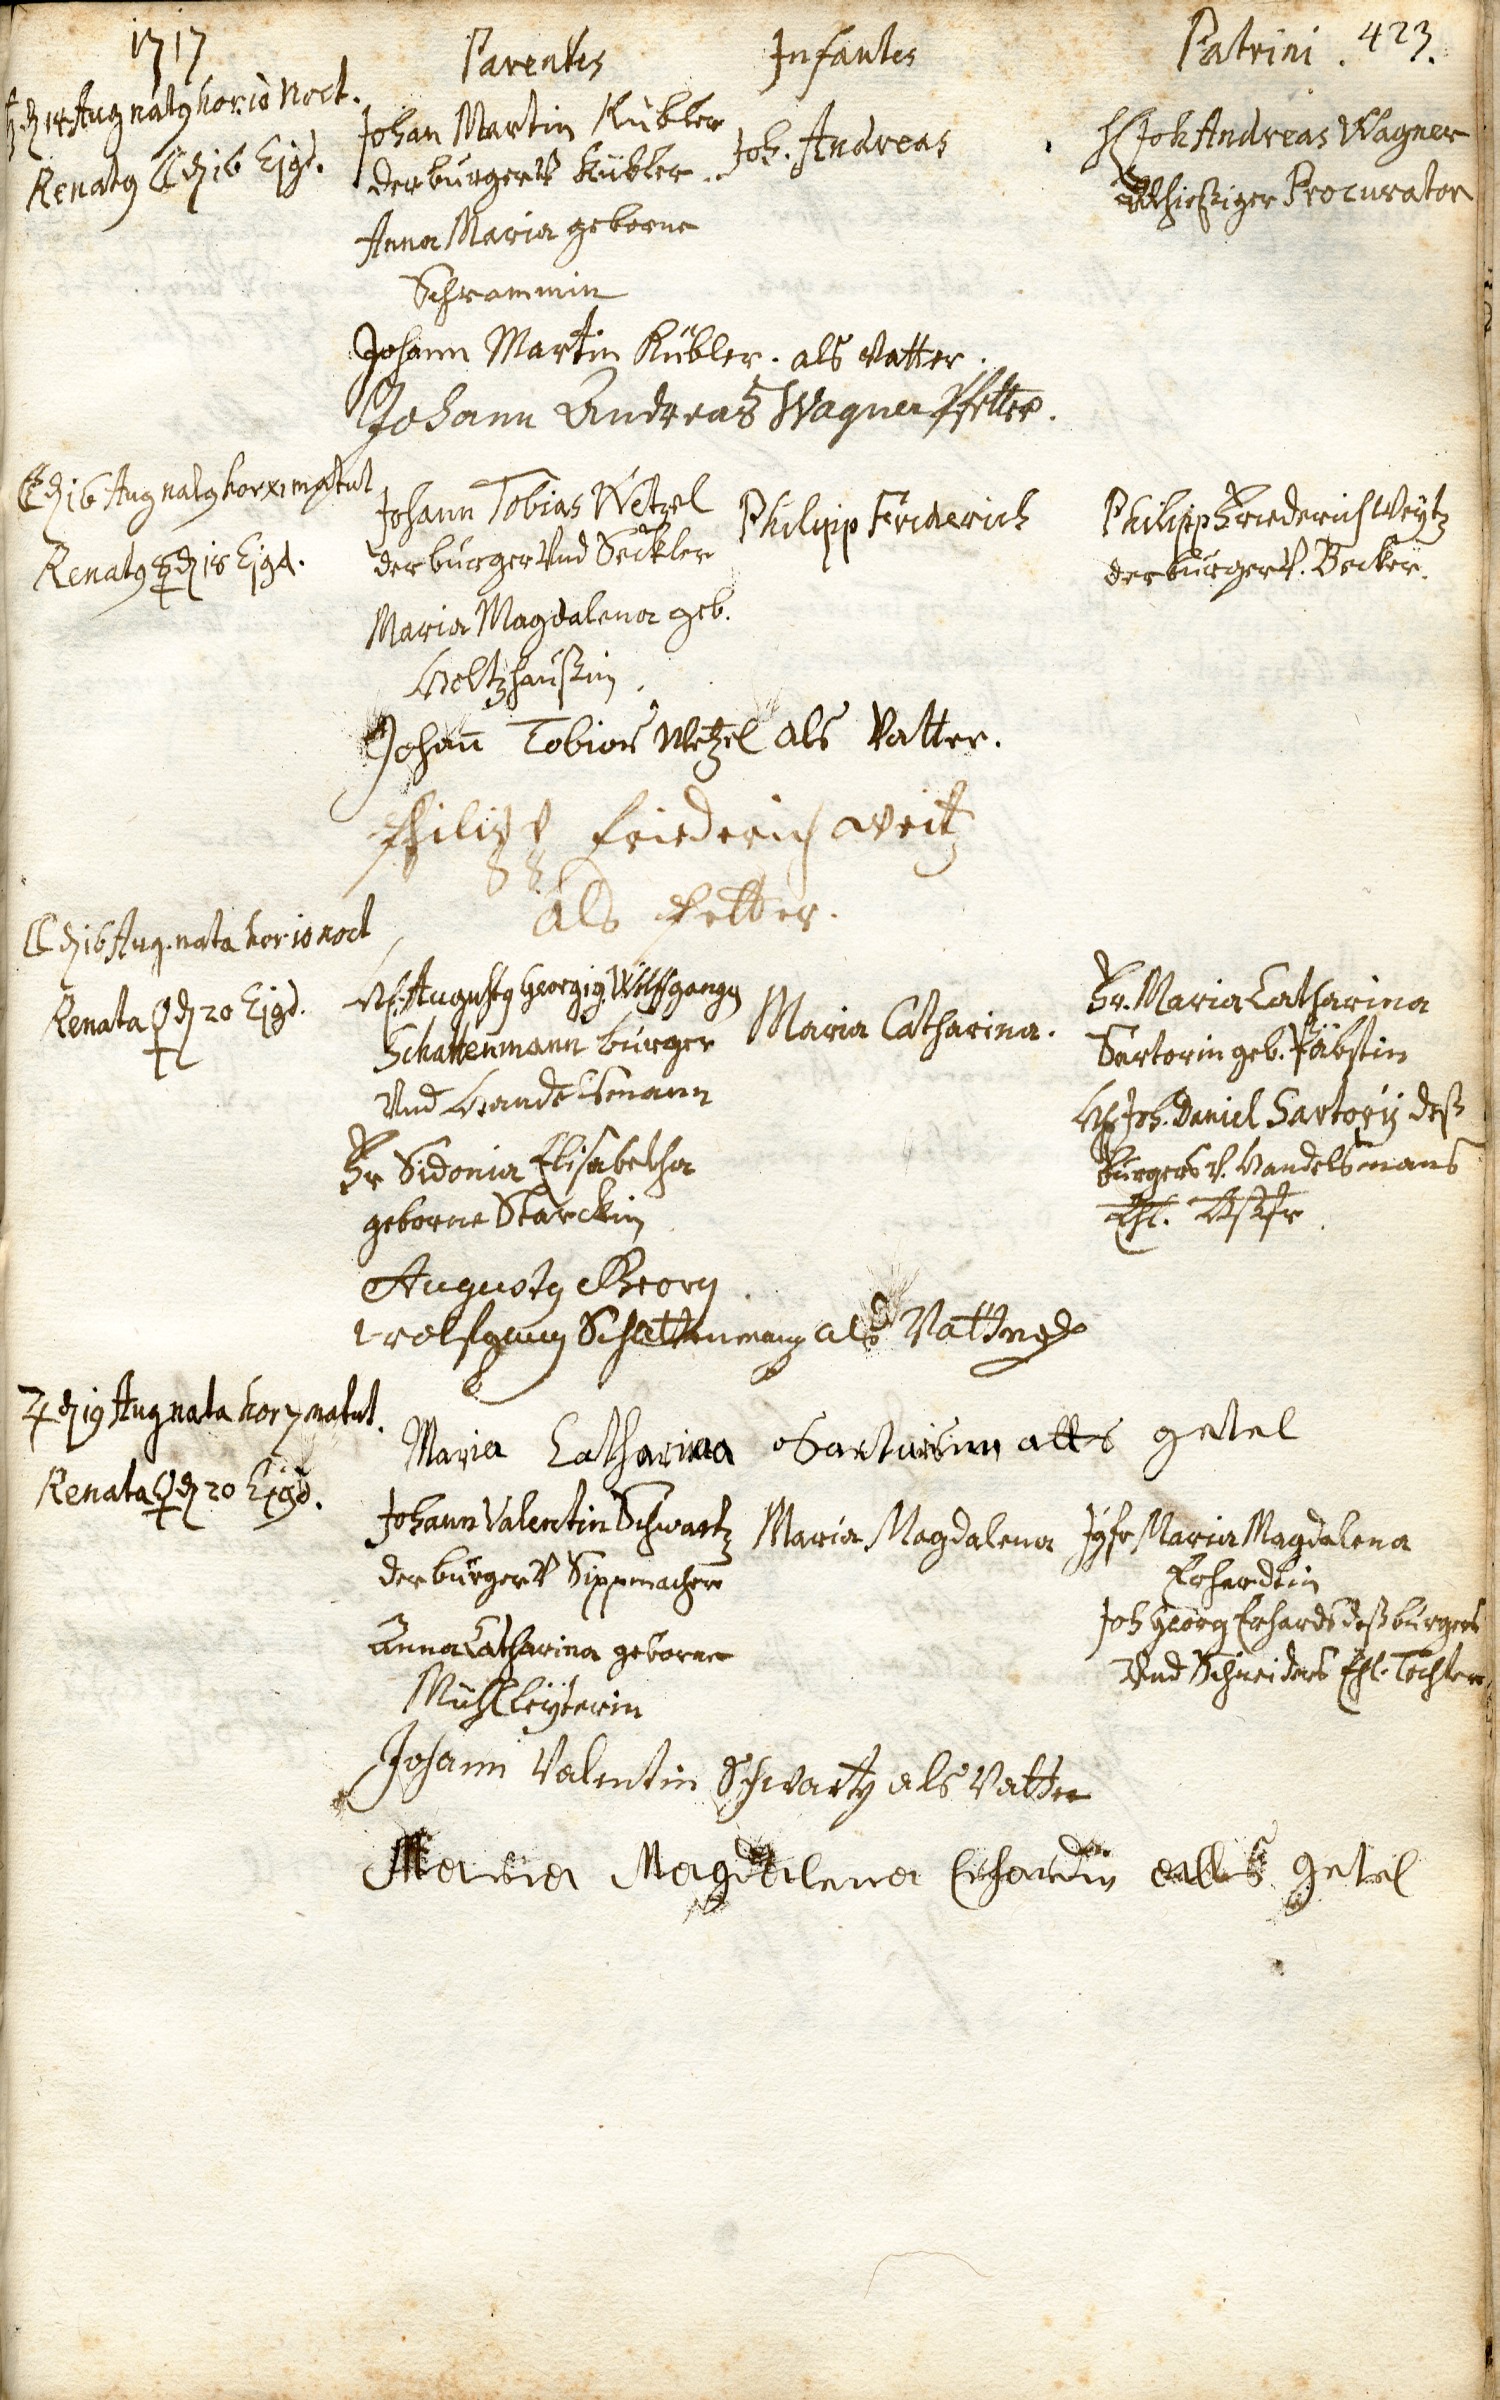 1717
Parentes
Infantes
Patrini. 423.
♄ d 14 Aug natg hor. 10 Noct.
Renatg ☾ d 16 Ejgd.
Johan Martin Kübler
der burger V Kübler.
Anna Maria geborne
Schrammin
Joh. Andreas
H Joh Andreas Wagner
hießiger Procurator
Johann Martin Kübler. als Vatter.
Johann Andreas Wagner Pfetter.
☾ d 16 Aug natg hor XI matut
Renatg ☿ d 18 Ejgd.
Johann Tobias Wetzel
der burger Vnd Seckler
Maria Magdalena geb.
Holtzhaußin.
Philipp Friderich
Philipp Friederich Weytz
der burger V. Becker.
Johañ Tobias Wetzel als Vatter.
Philipp Friederich Weitz
als Fetter.
☾ d 16 Aug. nata hor 10 noct
Renata ♀ d 20 Ejgd.
H. Augustg Georgig Wolffgangg
Schattenmann burger
Vnd Handelsmann
Fr Sidonia Elisabetha
geborne Starckin
Maria Catharina.
Fr. Maria Catharina
Sartorin geb. Päbstin
H. Joh. Daniel Sartorij deß
Burgers V. Handelsmans
Ehl. Hsfr.
Augustg Georg
Wolfgang Schattenmann als Vatter
Maria Catharina Sartorisinn alls getel
♃ d 19 Aug nata hor 7 matut.
Renata ♀ d 20 Ejgd.
Johann Valentin Schwartz
der burger V Sippmacher
Anna Catharina geborne
Mühlleyterin
Maria Magdalena
Jgfr Maria Magdalena
Erhardtin
Joh Georg Erhards deß burgers
Vnd Schneiders Ehl. Tochter
Johann Valentin Schwartz als Vatter
Maria Magdalena Erhardin alls getel